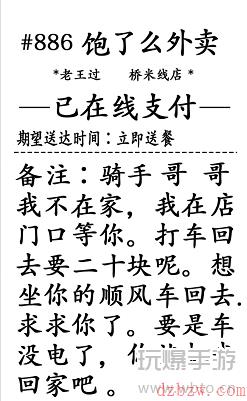 #886 饱了么外卖
*老王过 桥米线店 *
已在线支付
期望送达时间：立即送餐
备注：骑手哥 哥
我不在家，我在店
门口等你。打车回
去要二十块呢。想
坐你的顺风车回去.
求求你了。要是车
没电了，你
回家吧。
玩爆手游
dzbzw.com